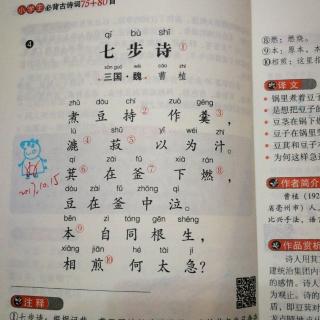 小学生必背古诗词75+80首
4
qī bù shī
七步诗①
sān guó wèi cáo zhí
三国·魏 曹 植
zhǔ dòu chí zuò gēng
煮豆持②作羹③，
lù shū yǐ wéi zhī
漉④菽⑤以为汁。
qí zài fǔ xià rán
萁⑥在釜⑦下燃⑧，
dòu zài fǔ zhōng qì
豆在釜中泣。
běn zì tóng gēn shēng
本⑨自同根生，
xiāng jiān hé tài jí
相煎⑩何太急？
2017.10.15
注释
⑧燃：燃烧。
⑨本：原本，本
⑩相煎：这里指
译文
锅里煮着豆子
是想把豆子
豆茎在锅下燃
豆子在锅里
豆萁和豆子本
为何这样急
作者简介
曹植（192
省亳州市）人，
比兴手法，语言
作品赏析
诗人用其
建统治集团内
的感情。诗人
为观止。诗的